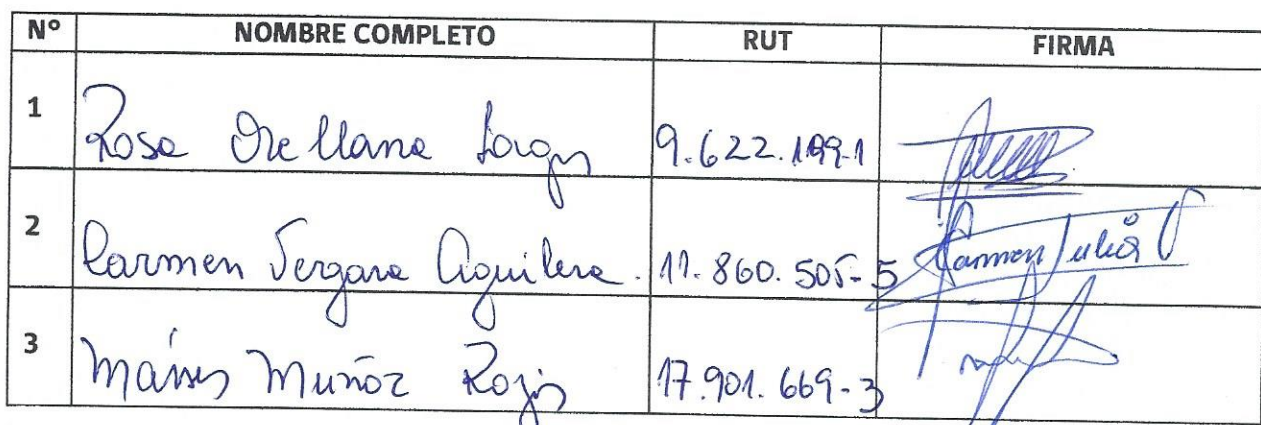 Nº NOMBRE COMPLETO RUT FIRMA
1 Rosa Orellana 9.622.199-1
2 Carmen Vergara Aguilera. 11.860.505-5 Carmen Julia V
3 Muñoz Rojas 17.901.669-3